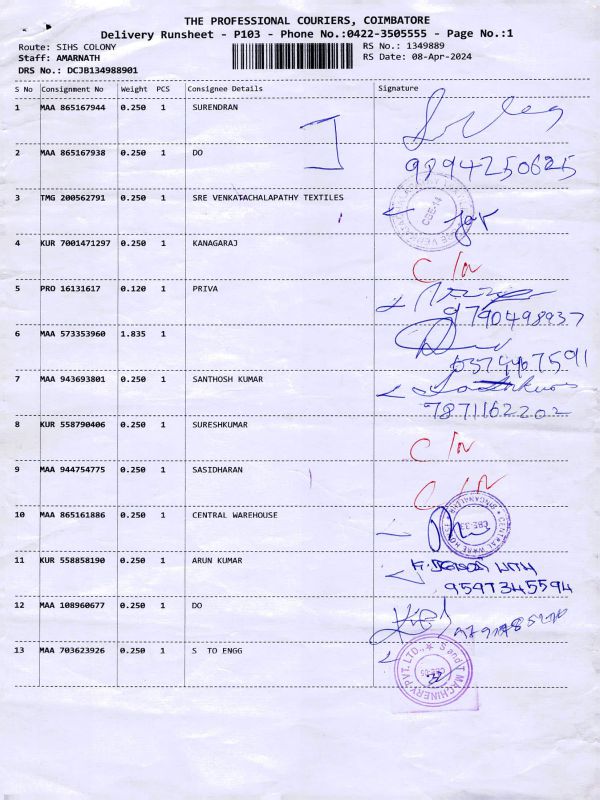 THE PROFESSIONAL COURIERS, COIMBATORE
Delivery Runsheet - P103 - Phone No.:0422-3505555 - Page No.:1
Route: SIHS COLONY
RS No.: 1349889
Staff: AMARNATH
RS Date: 08-Apr-2024
DRS No.: DCJB134988901
S No Consignment No Weight PCS Consignee Details Signature
1 MAA 865167944 0.250 1 SURENDRAN
2 MAA 865167938 0.250 1 DO
9894250625
3 TMG 200562791 0.250 1 SRE VENKATACHALAPATHY TEXTILES
CBE-14
4 KUR 7001471297 0.250 1 KANAGARAJ
C/N
5 PRO 16131617 0.120 1 PRIVA
9790498937
6 MAA 573353960 1.835 1
7 MAA 943693801 0.250 1 SANTHOSH KUMAR
7871162202
8 KUR 558790406 0.250 1 SURESHKUMAR
C/N
9 MAA 944754775 0.250 1 SASIDHARAN
C/N
10 MAA 865161886 0.250 1 CENTRAL WAREHOUSE
CENTRAL WARE HOUSE SINGANALLUR
CBE-33
11 KUR 558858190 0.250 1 ARUN KUMAR
9597345594
12 MAA 108960677 0.250 1 DO
13 MAA 703623926 0.250 1 S TO ENGG
SandT MACHINERY PVT. LTD.,
CBE-05